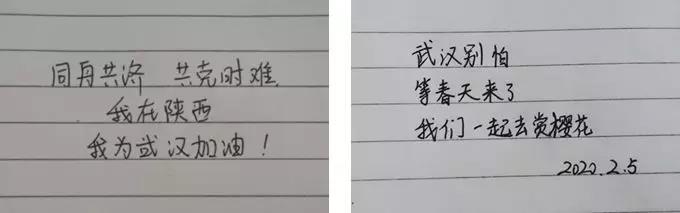 同舟共济 共克时难
我在陕西
我为武汉加油！
武汉别怕
等春天来了
我们一起去赏樱花
2020.2.5